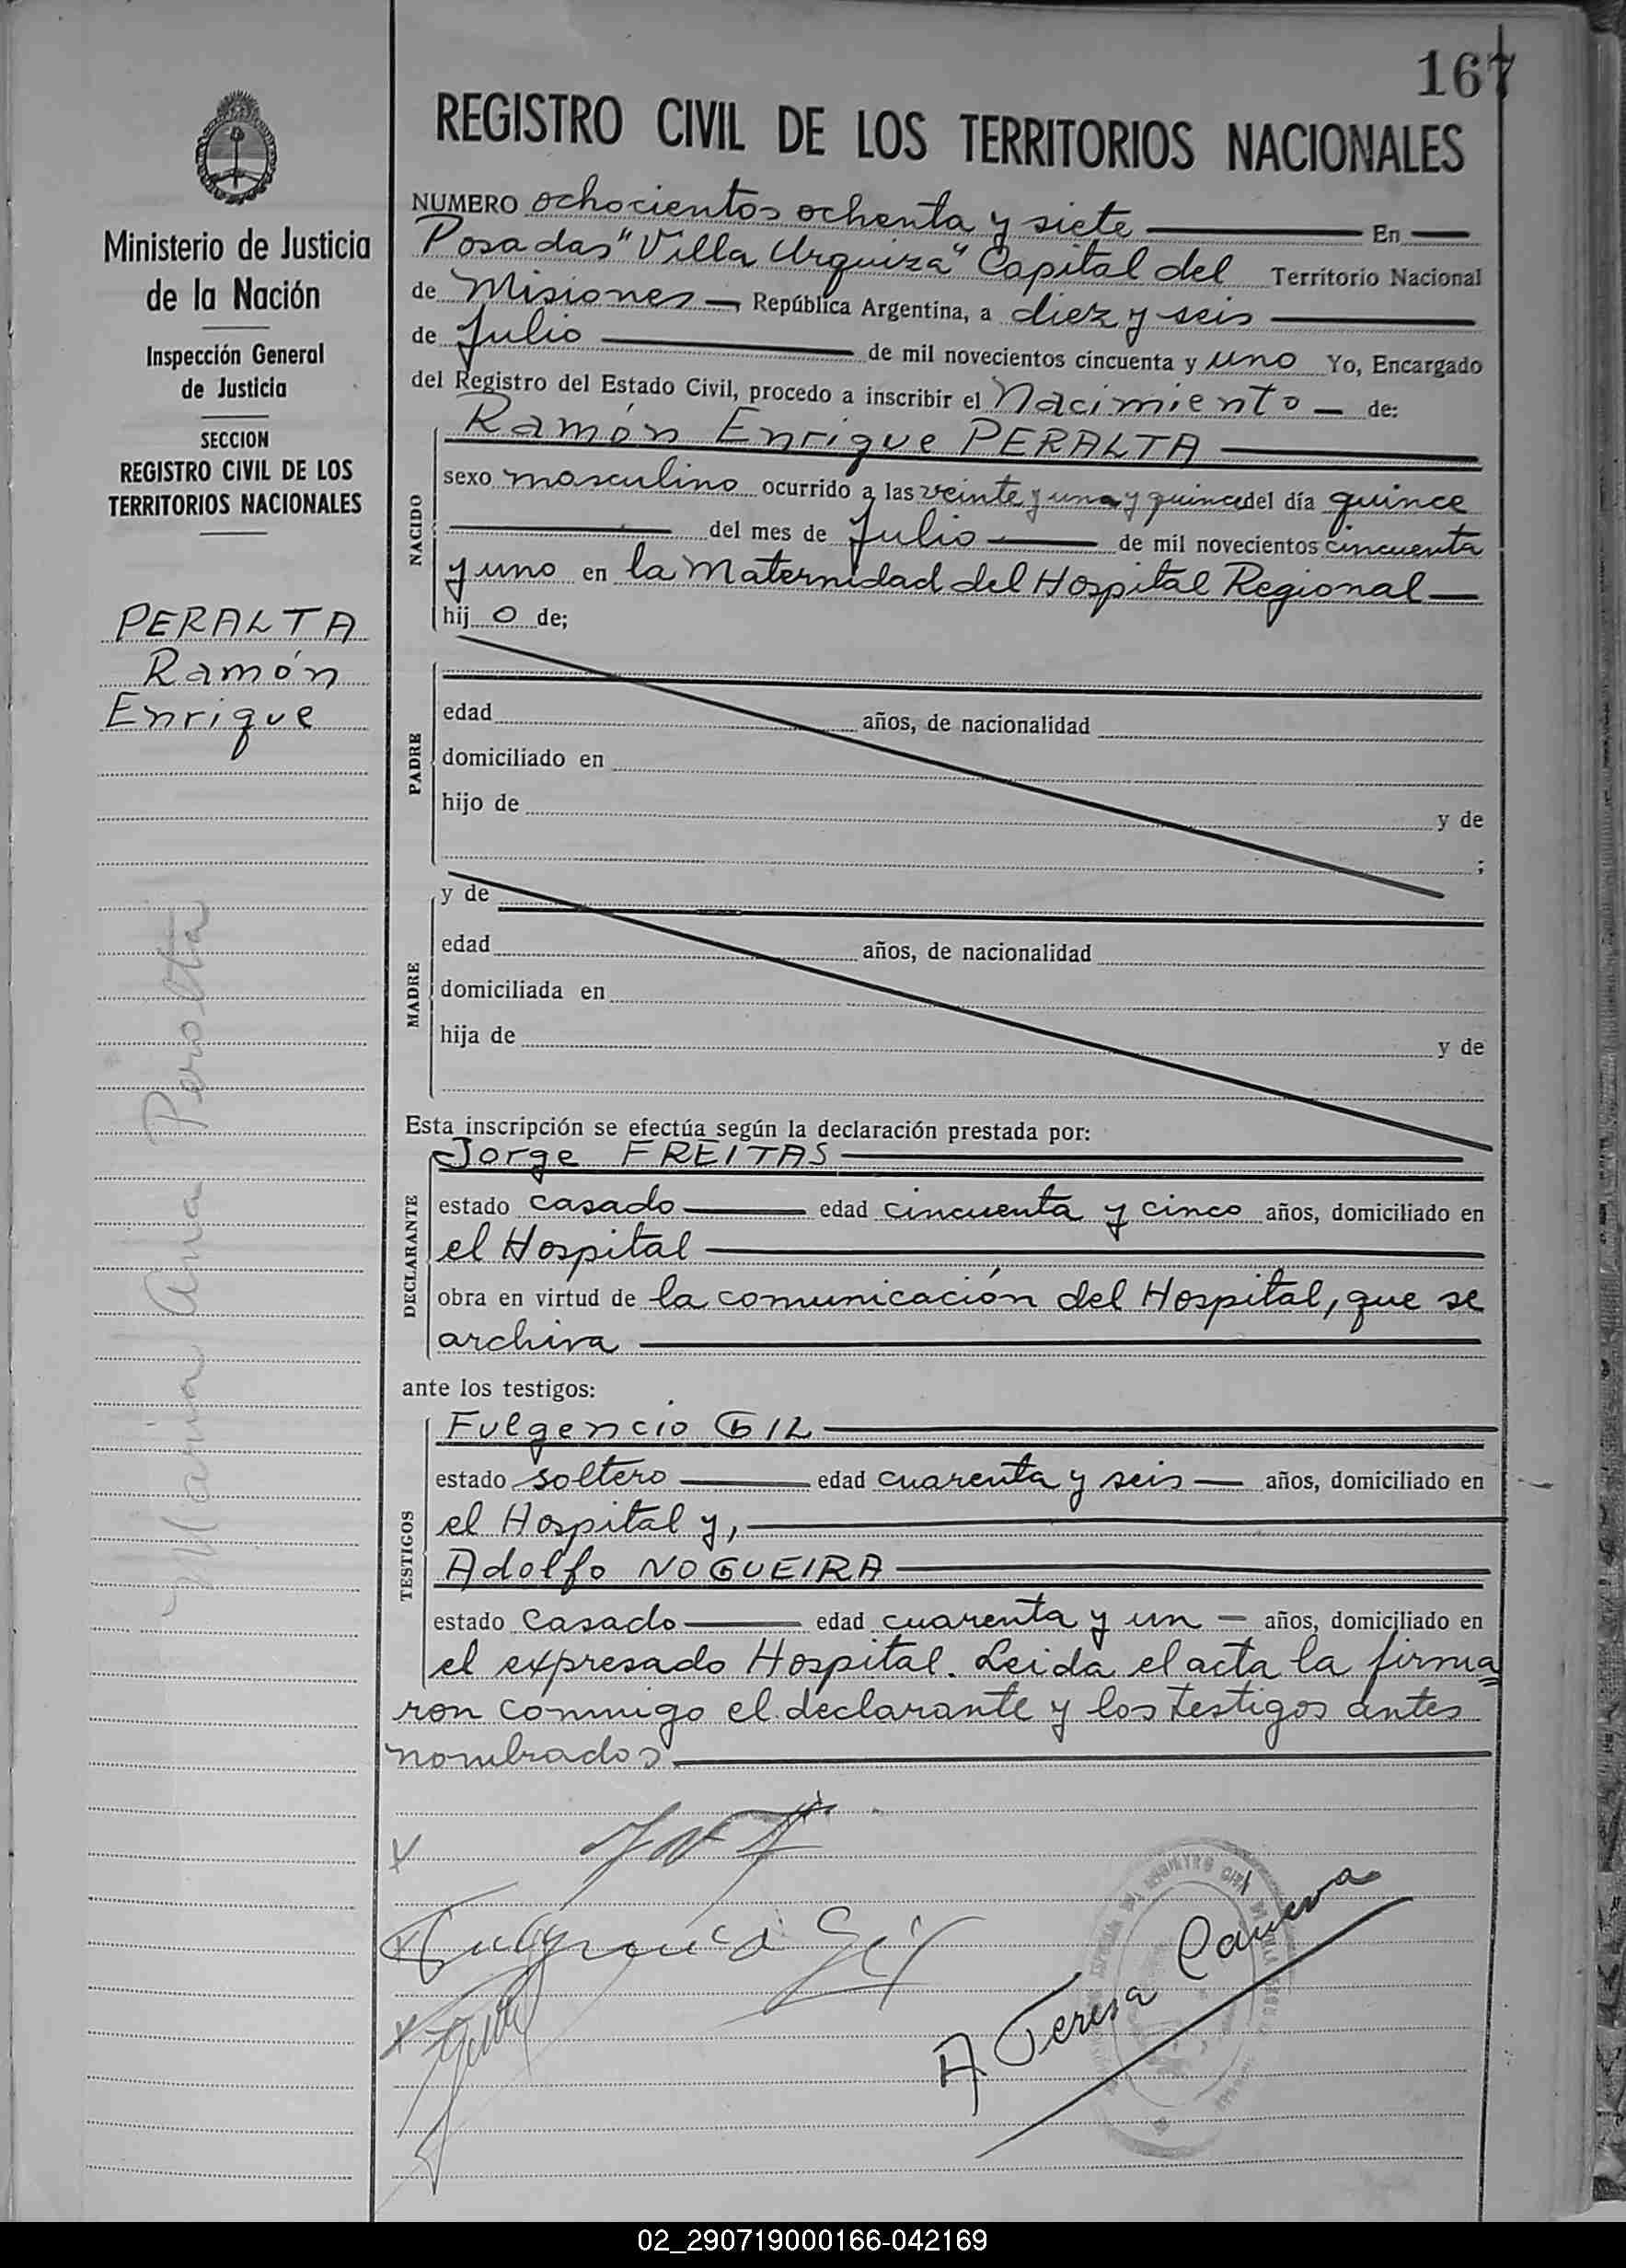 167
REGISTRO CIVIL DE LOS TERRITORIOS NACIONALES
Ministerio de Justicia
de la Nación
Inspección General
de Justicia
SECCION
REGISTRO CIVIL DE LOS
TERRITORIOS NACIONALES
PERALTA
Ramón
Enrique
Maria Ana Peralta
NUMERO ochocientos ochenta y siete — En —
Posadas "Villa Urquiza" Capital del Territorio Nacional
de Misiones —, República Argentina, a diez y seis —
de Julio — de mil novecientos cincuenta y uno Yo, Encargado
del Registro del Estado Civil, procedo a inscribir el Nacimiento — de:
NACIDO
Ramón Enrique PERALTA —
sexo masculino ocurrido a las veinte y una y quince del día quince
— del mes de Julio — de mil novecientos cincuenta
y uno en la Maternidad del Hospital Regional —
hij o de;
PADRE
edad años, de nacionalidad
domiciliado en
hijo de y de
;
MADRE
y de
edad años, de nacionalidad
domiciliada en
hija de y de
Esta inscripción se efectúa según la declaración prestada por:
DECLARANTE
Jorge FREITAS —
estado casado — edad cincuenta y cinco años, domiciliado en
el Hospital —
obra en virtud de la comunicación del Hospital, que se
archiva —
ante los testigos:
TESTIGOS
Fulgencio GIL —
estado soltero — edad cuarenta y seis — años, domiciliado en
el Hospital y, —
Adolfo NOGUEIRA —
estado casado — edad cuarenta y un — años, domiciliado en
el expresado Hospital. Leida el acta la firma=
ron conmigo el declarante y los testigos antes
nombrados —
Fulgencio Gil
A Teresa
02_290719000166-042169